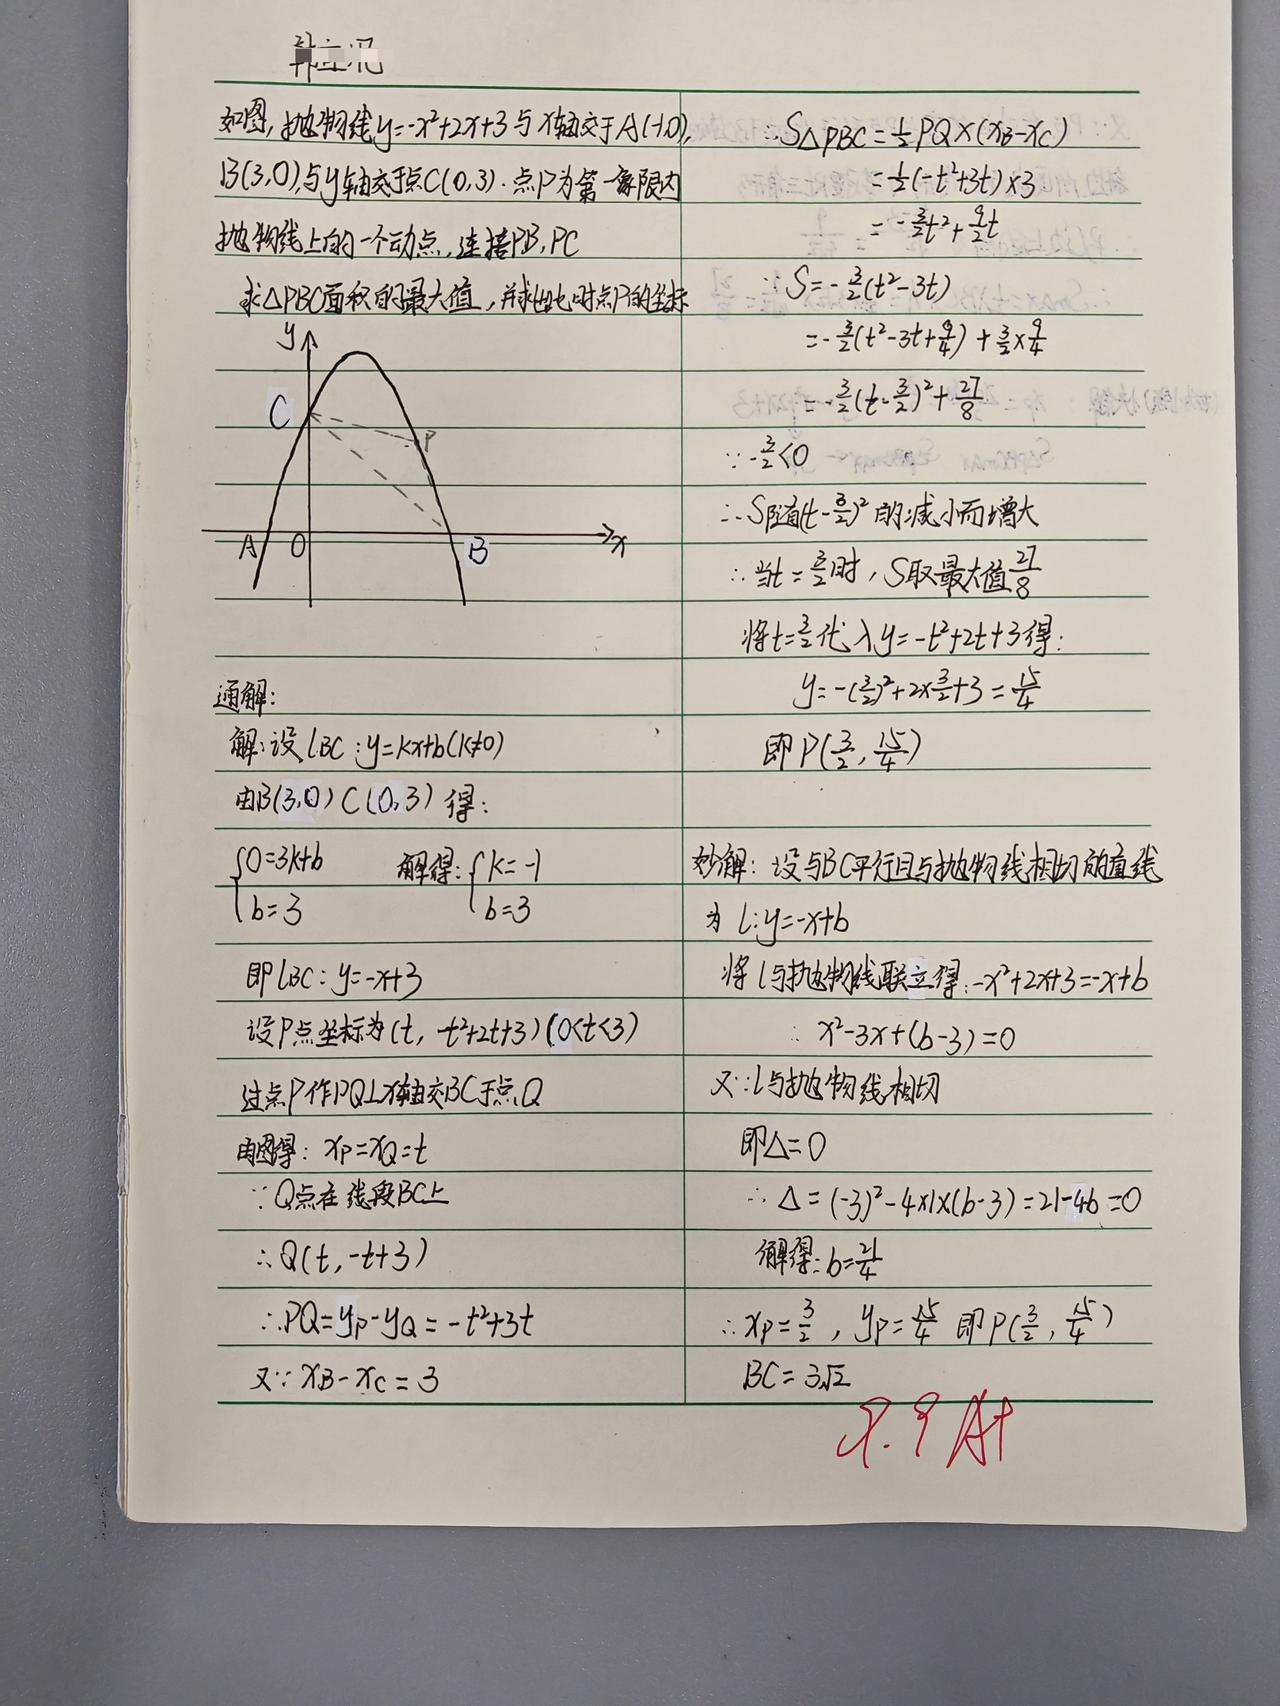 如图,抛物线y=-x²+2x+3与x轴交于A(-1,0),
B(3,0),与y轴交于点C(0,3).点P为第一象限内
抛物线上的一个动点,连接PB,PC
求△PBC面积的最大值,并求出此时点P的坐标
y
C
P
A
O
B
x
通解:
解:设lBC:y=kx+b(k≠0)
由B(3,0)C(0,3)得:
{0=3k+b 解得:{k=-1
b=3 b=3
即lBC:y=-x+3
设P点坐标为(t,-t²+2t+3)(0<t<3)
过点P作PQ⊥x轴交BC于点Q
由图得:xP=xQ=t
∵Q点在线段BC上
∴Q(t,-t+3)
∴PQ=yP-yQ=-t²+3t
又∵xB-xC=3
∴S△PBC=½PQ×(xB-xC)
=½(-t²+3t)×3
=-3/2t²+9/2t
∵S=-3/2(t²-3t)
=-3/2(t²-3t+9/4)+3/2×9/4
=-3/2(t-3/2)²+27/8
∵-3/2<0
∴S随(t-3/2)²的减小而增大
∴当t=3/2时,S取最大值27/8
将t=3/2代入y=-t²+2t+3得:
y=-(3/2)²+2×3/2+3=15/4
即P(3/2,15/4)
妙解:设与BC平行且与抛物线相切的直线
为l:y=-x+b
将l与抛物线联立得:-x²+2x+3=-x+b
∴x²-3x+(b-3)=0
又∵l与抛物线相切
即△=0
∴△=(-3)²-4×1×(b-3)=21-4b=0
解得:b=21/4
∴xP=3/2,yP=15/4 即P(3/2,15/4)
BC=3√2
9.9 A+